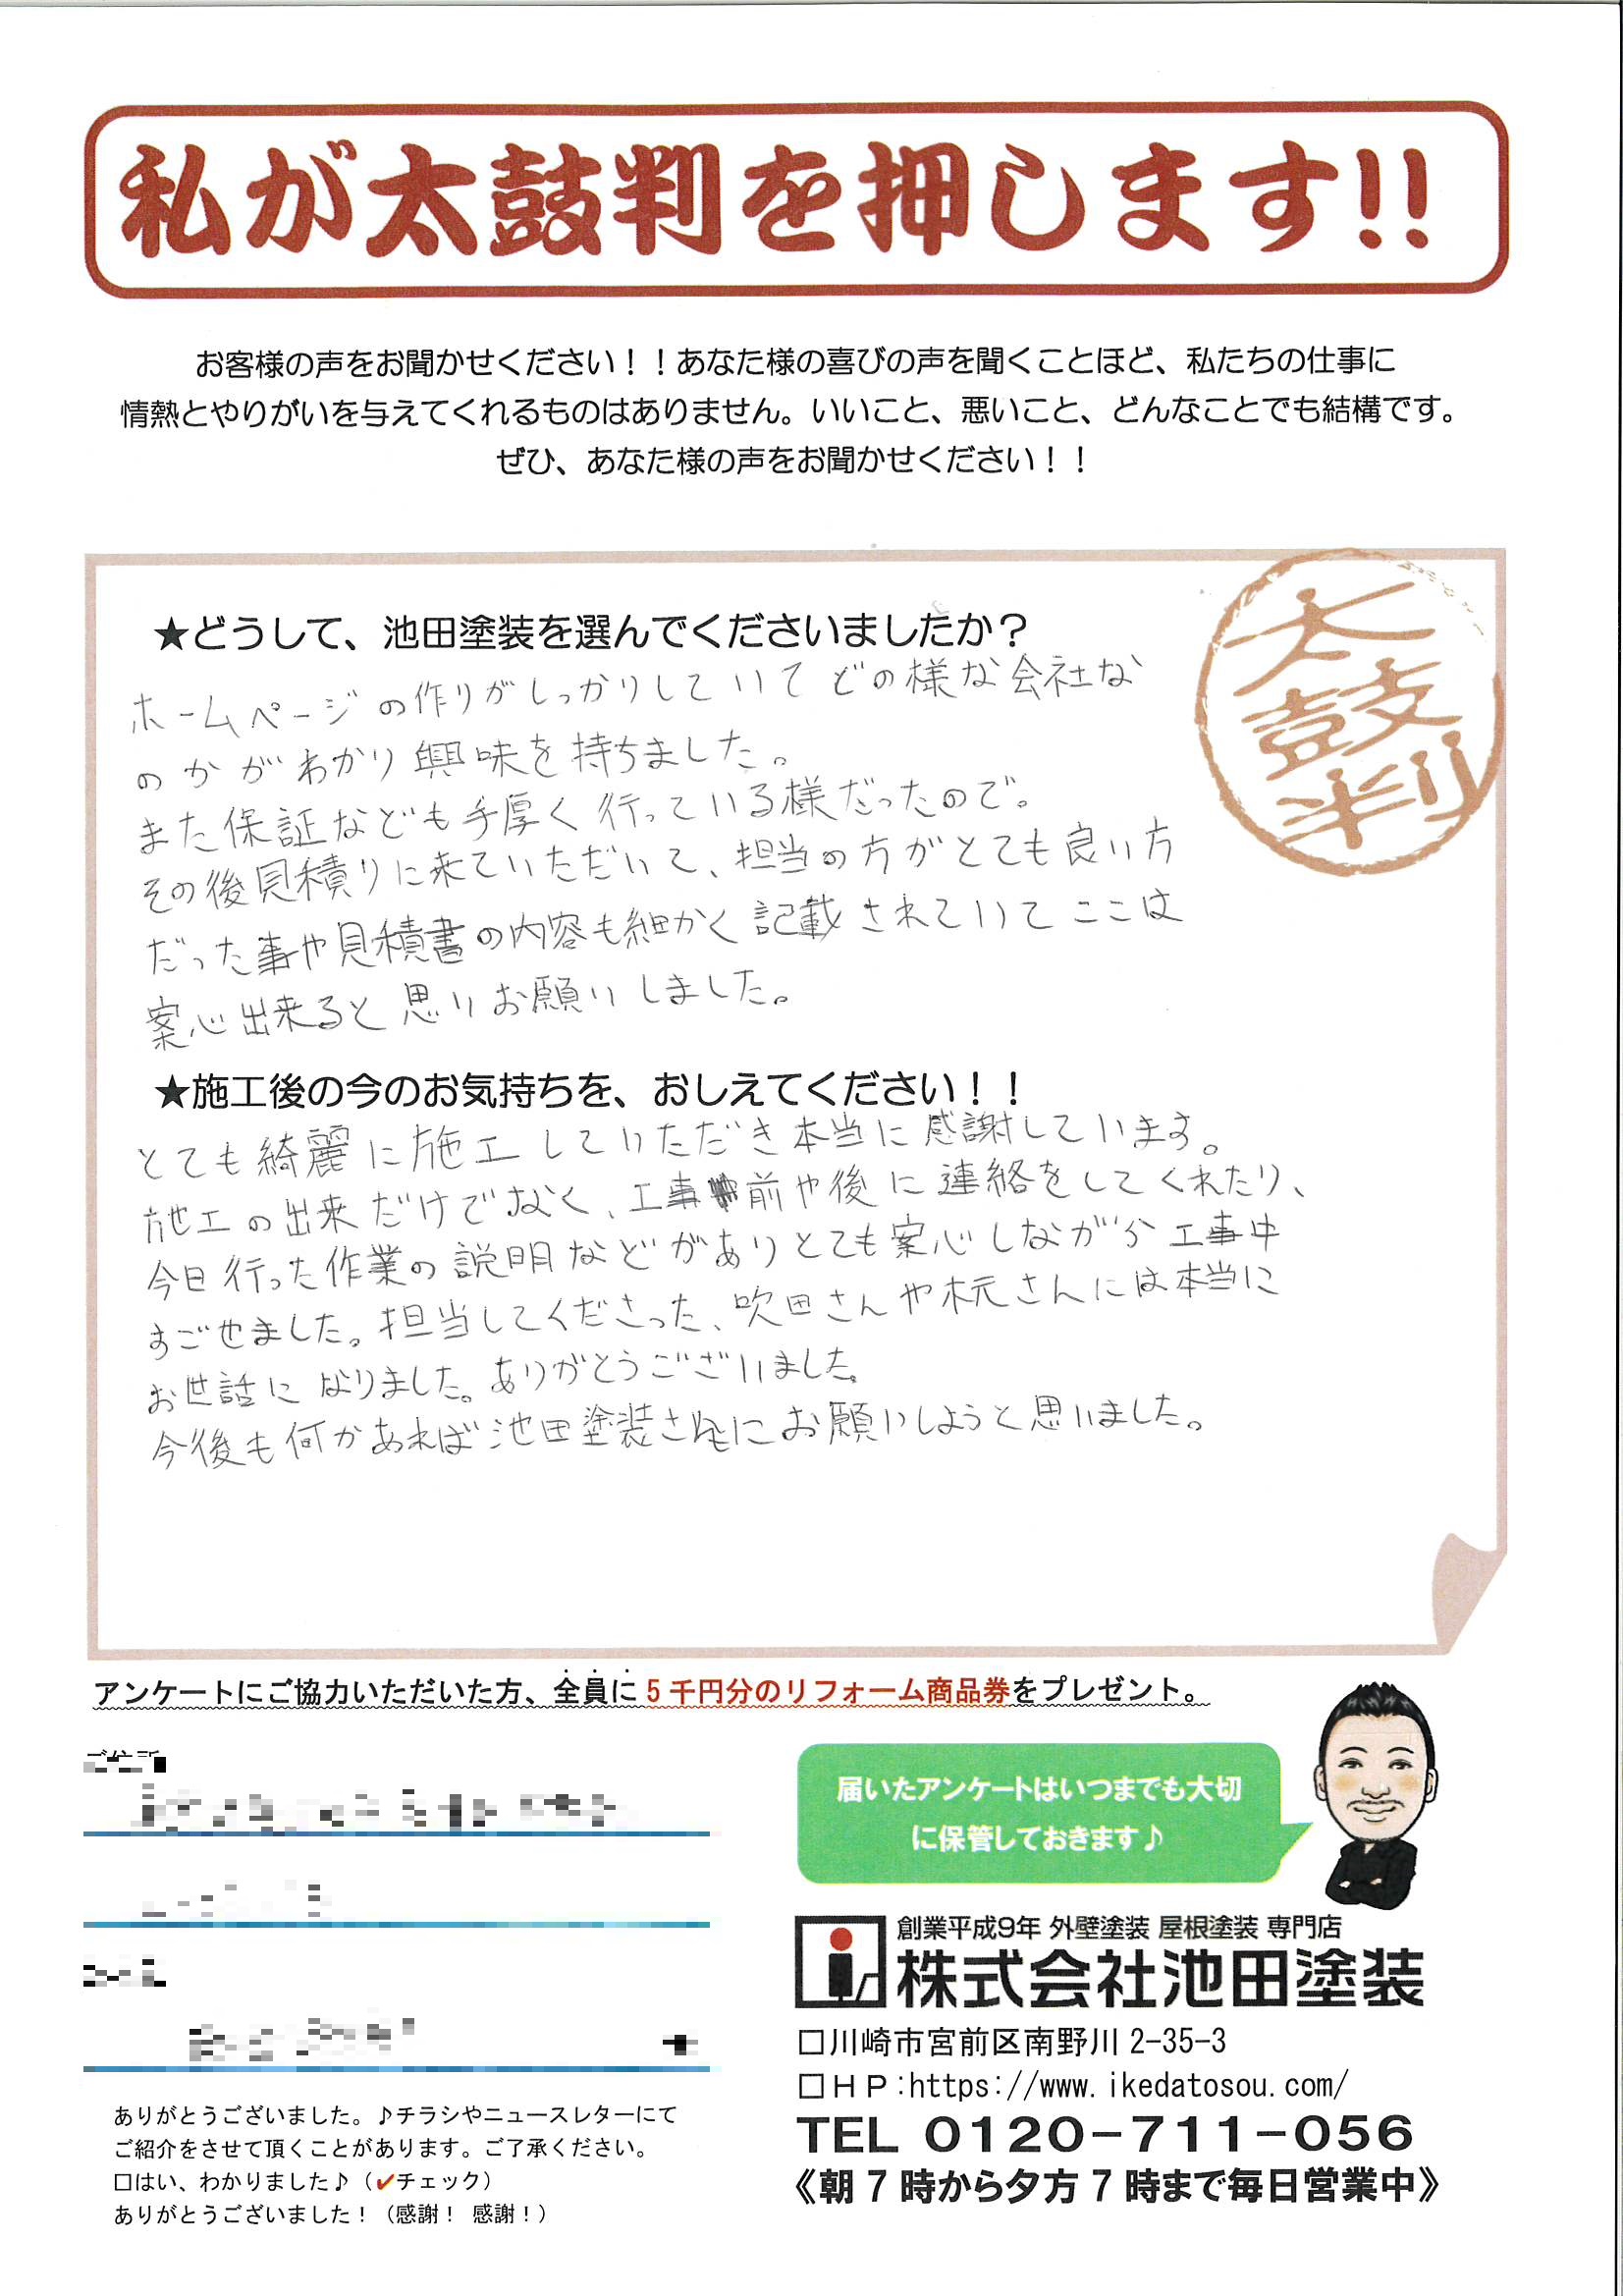 私が太鼓判を押します!!
お客様の声をお聞かせください！！あなた様の喜びの声を聞くことほど、私たちの仕事に
情熱とやりがいを与えてくれるものはありません。いいこと、悪いこと、どんなことでも結構です。
ぜひ、あなた様の声をお聞かせください！！
太鼓判
★どうして、池田塗装を選んでくださいましたか？
ホームページの作りがしっかりしていてどの様な会社な
のかがわかり興味を持ちました。
また保証なども手厚く行っている様だったので。
その後見積りに来ていただいて、担当の方がとても良い方
だった事や見積書の内容も細かく記載されていてここは
案心出来ると思いお願いしました。
★施工後の今のお気持ちを、おしえてください！！
とても綺麗に施工していただき本当に感謝しています。
施工の出来だけでなく、工事前や後に連絡をしてくれたり、
今日行った作業の説明などがありとても案心しながら工事中
すごせました。担当してくださった、吹田さんや木元さんには本当に
お世話になりました。ありがとうございました。
今後も何かあれば池田塗装さんにお願いしようと思いました。
アンケートにご協力いただいた方、全員に5千円分のリフォーム商品券をプレゼント。
届いたアンケートはいつまでも大切
に保管しておきます♪
創業平成9年 外壁塗装 屋根塗装 専門店
株式会社池田塗装
□川崎市宮前区南野川2-35-3
□ＨＰ:https://www.ikedatosou.com/
TEL 0120-711-056
《朝7時から夕方7時まで毎日営業中》
ありがとうございました。♪チラシやニュースレターにて
ご紹介をさせて頂くことがあります。ご了承ください。
□はい、わかりました♪（✔チェック）
ありがとうございました！（感謝！ 感謝！）